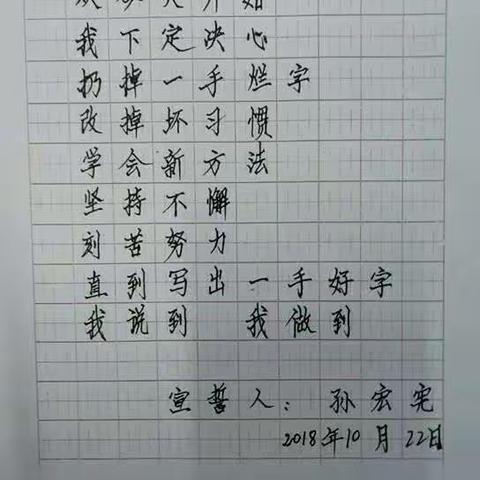 我下定决心
扔掉一手烂字
改掉坏习惯
学会新方法
坚持不懈
刻苦努力
直到写出一手好字
我说到 我做到
宣誓人：孙宏宪
2018年10月22日